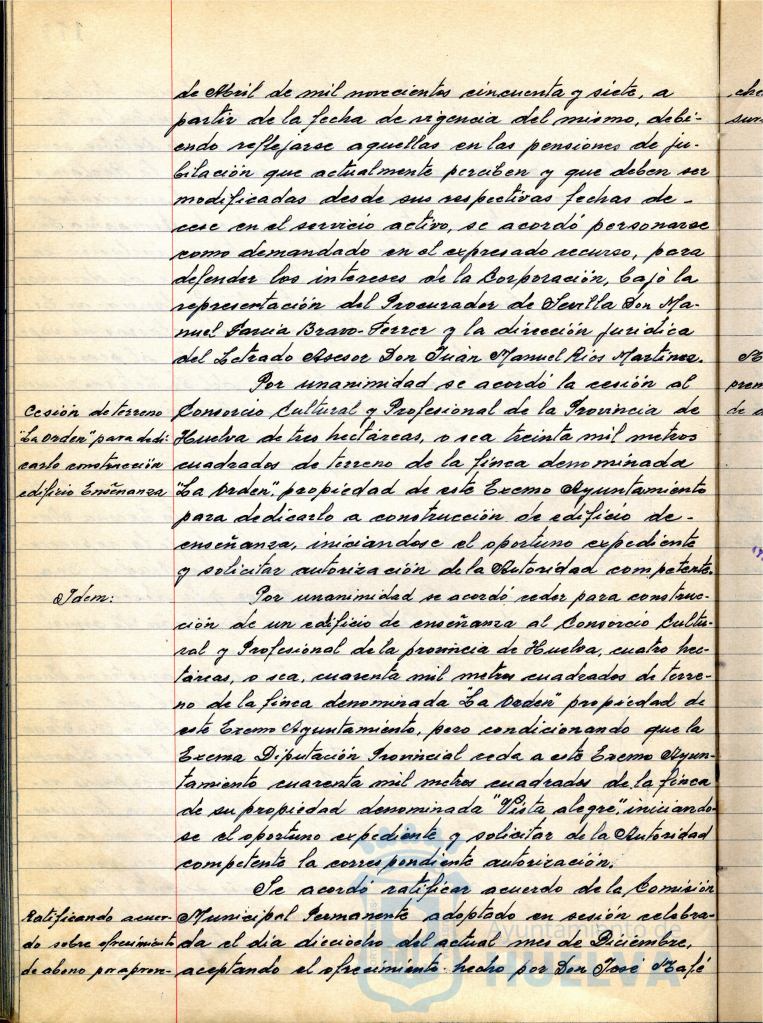 de Abril de mil novecientos cincuenta y siete, a
partir de la fecha de vigencia del mismo, debi-
endo reflejarse aquellas en las pensiones de ju-
bilación que actualmente perciben y que deben ser
modificadas desde sus respectivas fechas de-
cese en el servicio activo, se acordó personarse
como demandado en el expresado recurso, para
defender los intereses de la Corporación, bajo la
representación del Procurador de Sevilla Don Ma-
nuel García Bravo-Ferrer y la dirección jurídica
del Letrado Asesor Don Juan Manuel Rios Martinez.
Por unanimidad se acordó la cesión al
Cesión de terreno
Consorcio Cultural y Profesional de la Provincia de
"La Orden" para dedi-
Huelva de tres hectáreas, o sea treinta mil metros
carlo construcción
cuadrados de terreno de la finca denominada
edificio Enseñanza
"La Orden", propiedad de este Excmo Ayuntamiento
para dedicarlo a construcción de edificio de-
enseñanza, iniciandose el oportuno expediente
y solicitar autorización de la Autoridad competente.
Idem:
Por unanimidad se acordó ceder para construc-
ción de un edificio de enseñanza al Consorcio Cultu-
ral y Profesional de la provincia de Huelva, cuatro hec-
táreas, o sea, cuarenta mil metros cuadrados de terre-
no de la finca denominada "La Orden" propiedad de
este Excmo Ayuntamiento, pero condicionando que la
Excma Diputación Provincial ceda a este Excmo Ayun-
tamiento cuarenta mil metros cuadrados de la finca
de su propiedad denominada "Vista alegre", iniciando-
se el oportuno expediente y solicitar de la Autoridad
competente la correspondiente autorización.
Se acordó ratificar acuerdo de la Comisión
Ratificando acuer-
Municipal Permanente adoptado en sesión celebra-
do sobre ofrecimiento
da el día dieciocho del actual mes de Diciembre,
de abono por apron-
aceptando el ofrecimiento hecho por Don José
Ayuntamiento de
HUELVA